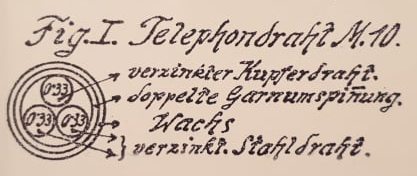 Fig. I. Telephondraht M. 10.
0·33 verzinkter Kupferdraht.
doppelte Garnumspin̅ung.
0·33 0·33 Wachs
verzinkt. Stahldraht.